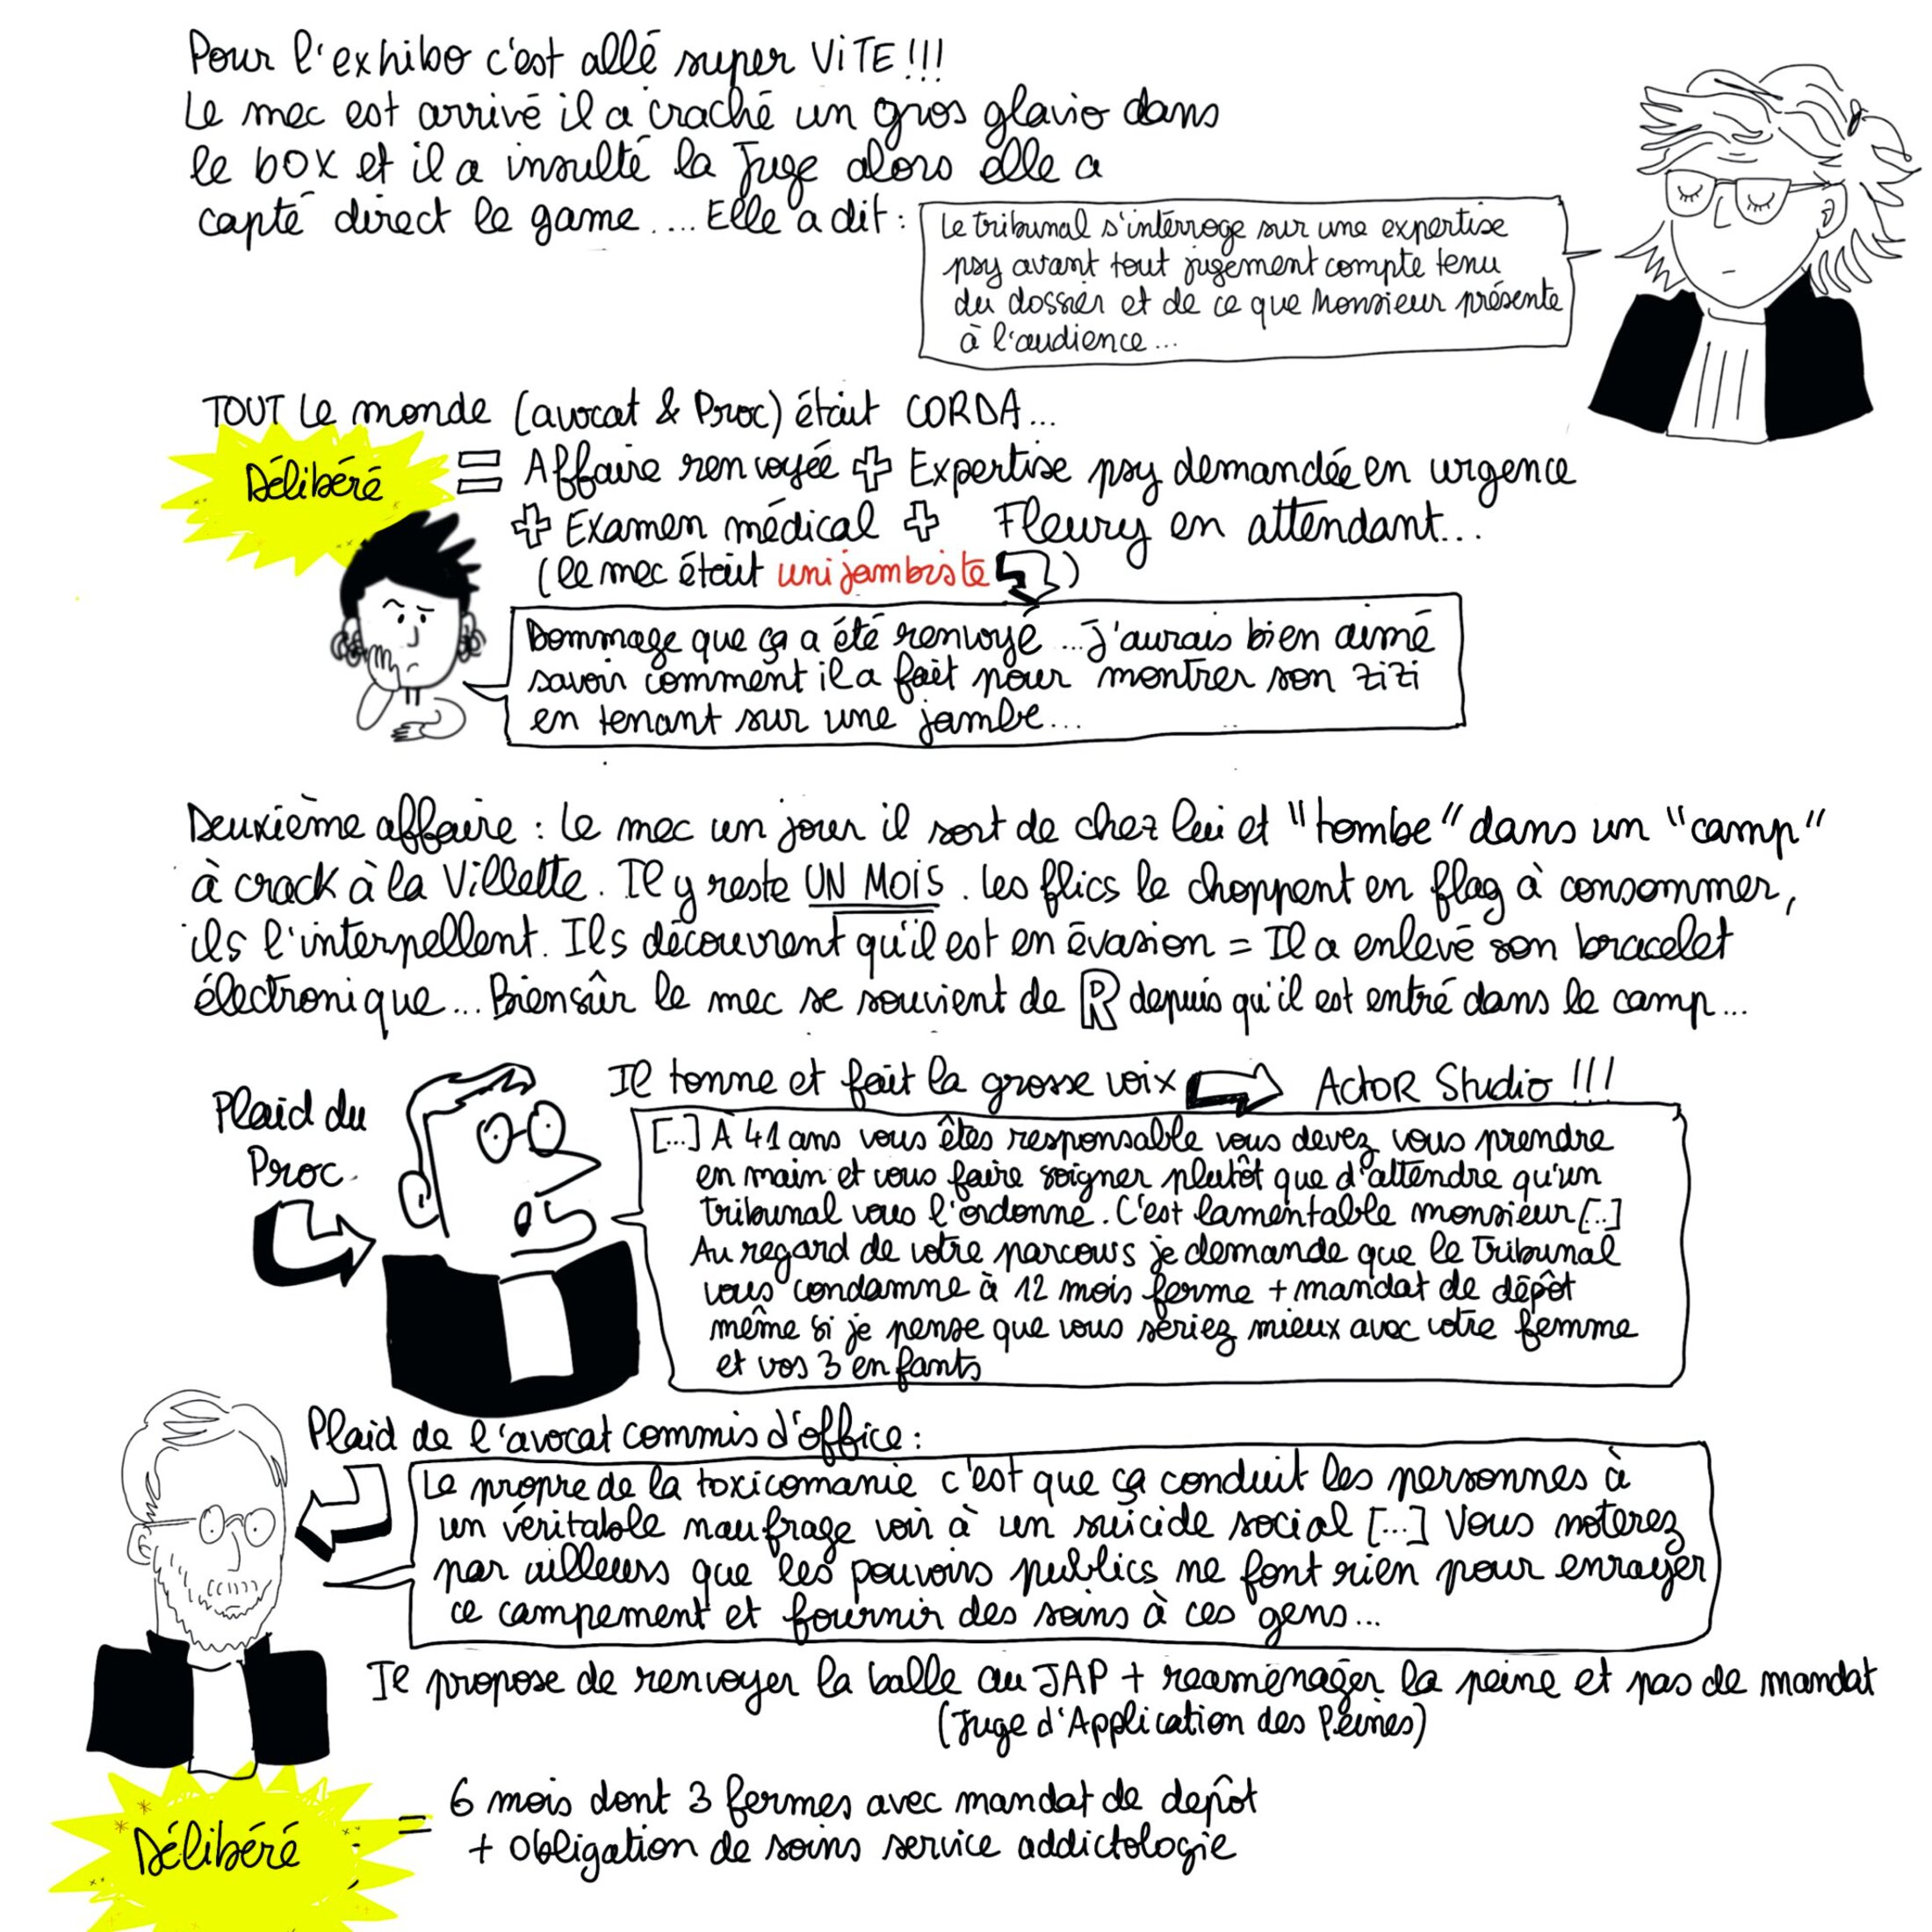 Pour l'exhibo c'est allé super ViTE !!!
Le mec est arrivé il a craché un gros glavio dans
le box et il a insulté la Juge alors elle a
capté direct le game.... Elle a dit :
Le tribunal s'intérroge sur une expertise
psy avant tout jugement compte tenu
du dossier et de ce que Monsieur présente
à l'audience...
TOUT Le monde (avocat & Proc) était CORDA...
Délibéré
= Affaire renvoyée + Expertise psy demandée en urgence
+ Examen médical + Fleury en attendant...
(le mec était unijambiste)
Dommage que ça a été renvoyé ... J'aurais bien aimé
savoir comment il a fait pour montrer son zizi
en tenant sur une jambe...
Deuxième affaire : Le mec un jour il sort de chez lui et "tombe" dans un "camp"
à crack à la Villette. Il y reste UN MOIS. Les flics le choppent en flag à consommer,
ils l'interpellent. Ils découvrent qu'il est en évasion = Il a enlevé son bracelet
électronique... Biensûr le mec se souvient de R depuis qu'il est entré dans le camp...
Plaid du
Proc.
Il tonne et fait la grosse voix ActoR Studio !!!
[...] À 41 ans vous êtes responsable vous devez vous prendre
en main et vous faire soigner plutôt que d'attendre qu'un
tribunal vous l'ordonne. C'est lamentable monsieur [..]
Au regard de votre parcours je demande que le Tribunal
vous condamne à 12 mois ferme + mandat de dépôt
même si je pense que vous seriez mieux avec votre femme
et vos 3 enfants
Plaid de l'avocat commis d'office :
Le propre de la toxicomanie c'est que ça conduit les personnes à
un véritable naufrage voir à un suicide social [...] Vous noterez
par ailleurs que les pouvoirs publics ne font rien pour enrayer
ce campement et fournir des soins à ces gens...
Il propose de renvoyer la balle au JAP + reaménager la peine et pas de mandat
(Juge d'Application des Peines)
Délibéré
= 6 mois dont 3 fermes avec mandat de depôt
+ obligation de soins service addictologie